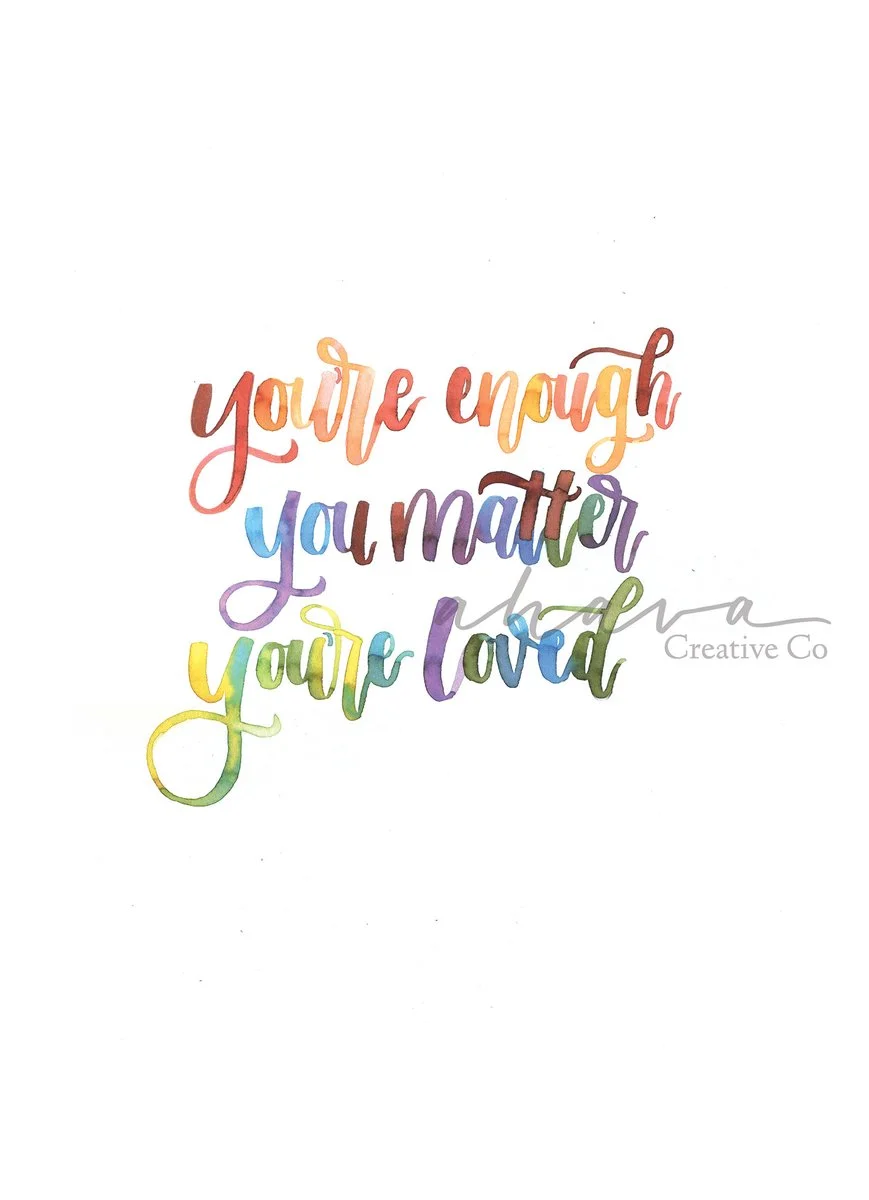 you're enough
you matter
you're loved
ahava
Creative Co